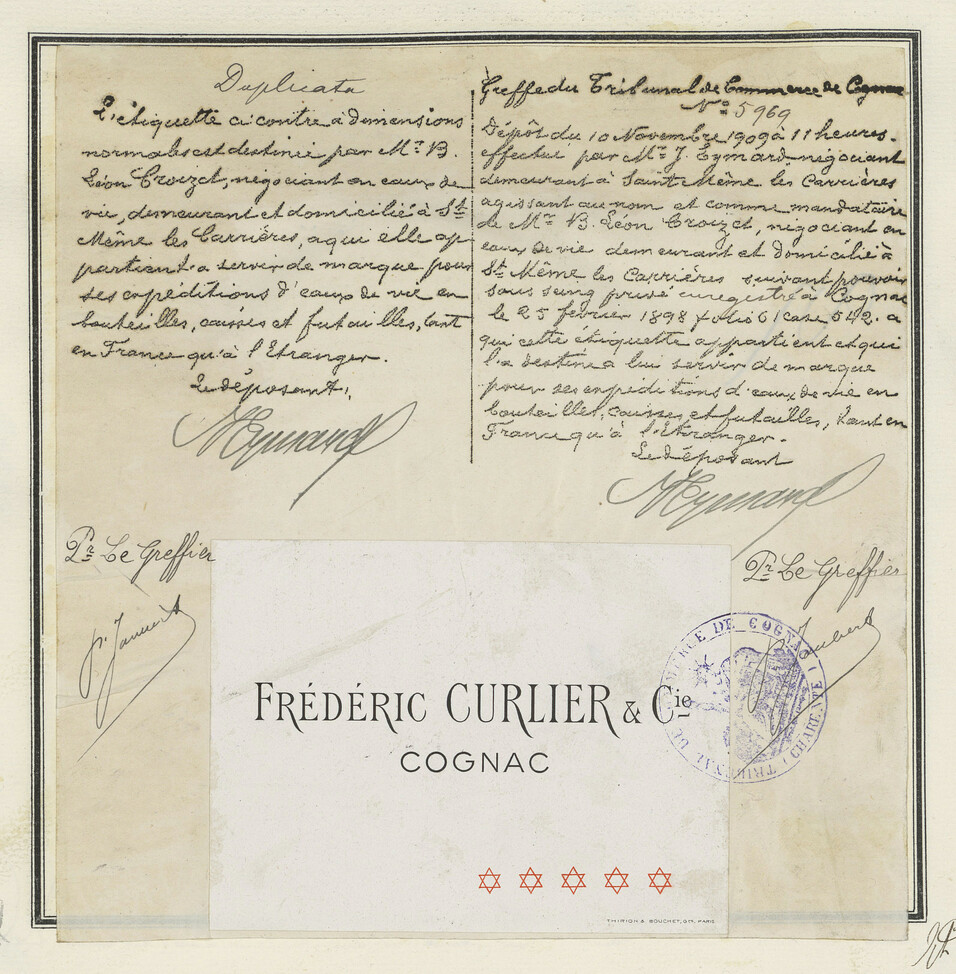 Duplicata
L'étiquette ci contre à dimensions
normales est destinée par Mr. B.
Léon Croizet, négociant en eaux de
vie, demeurant et domicilié à St.
Même les Carrières, a qui elle ap
partient a servir de marque pour
ses expéditions d'eaux de vie en
bouteilles, caisses et futailles, tant
en France qu'à l'Etranger.
Le déposant,
Pr. Le Greffier
Greffe du Tribunal de Commerce de Cognac
No. 5969
Dépôt du 10 Novembre 1909 à 11 heures.
effectué par Mr. J. Eymard, négociant
demeurant à Sainte Même les Carrières
agissant au nom et comme mandataire
de Mr. B. Léon Croizet, négociant en
eaux de vie demeurant et domicilié à
St. Même les Carrières suivant pouvoir
sous seing privé enregistré à Cognac
le 25 février 1898 folio 61 case 542. a
qui cette étiquette appartient et qui
l'a destinée a lui servir de marque
pour ses expéditions d'eaux de vie en
bouteilles, caisses et futailles, tant en
France qu'à l'Etranger.
Le déposant
Pr. Le Greffier
FRÉDÉRIC CURLIER & Cie
COGNAC
THIRION & BOUCHET, Grs, PARIS
TRIBUNAL DE COMMERCE DE COGNAC (CHARENTE)